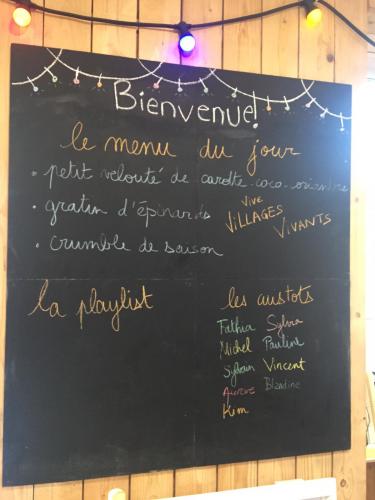 Bienvenue!
le menu du jour
• petit velouté de carotte-coco-coriandre
• gratin d'épinards
VIVE
VILLAGES
VIVANTS
• crumble de saison
la playlist
les custots
Fathia Sylvia
Michel Pauline
Sylvain Vincent
Aurore Blandine
Kim